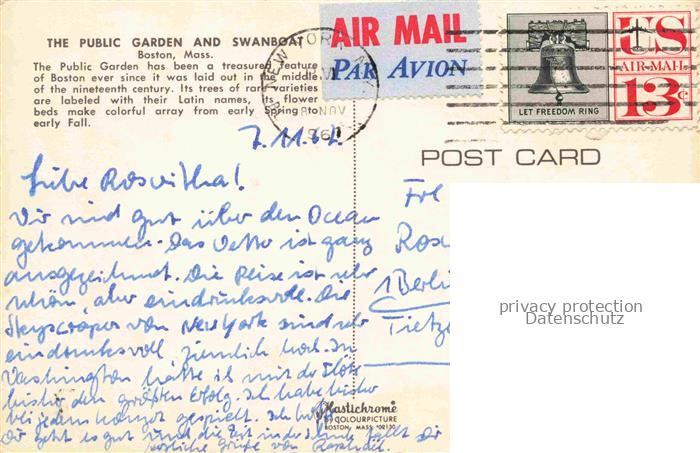 THE PUBLIC GARDEN AND SWANBOAT
Boston, Mass.
The Public Garden has been a treasured feature
of Boston ever since it was laid out in the middle
of the nineteenth century. Its trees of rare varieties
are labeled with their Latin names, its flower
beds make colorful array from early Spring to
early Fall.
AIR MAIL
PAR AVION
US
AIR MAIL
13¢
LET FREEDOM RING
NEW YORK
8 NOV
POST CARD
Liebe Roswitha!
Wir sind gut über den Ocean
gekommen. Das Wetter ist ganz
ausgezeichnet. Die Reise ist sehr
schön, aber eindrucksvoll. Die
Skyscraper von New York sind sehr
eindrucksvoll, ziemlich hoch. In
Washington hatte ich mit der Flöte
bisher den größten Erfolg. Ich habe bisher
bei jedem Konzert gespielt. Ich hoffe
Dir geht es gut und die Zeit in der Schule fällt Dir
herzliche Grüße von
Frl
1 Berlin
privacy protection
Datenschutz
Plastichrome
BY COLOURPICTURE
BOSTON, MASS. 02130